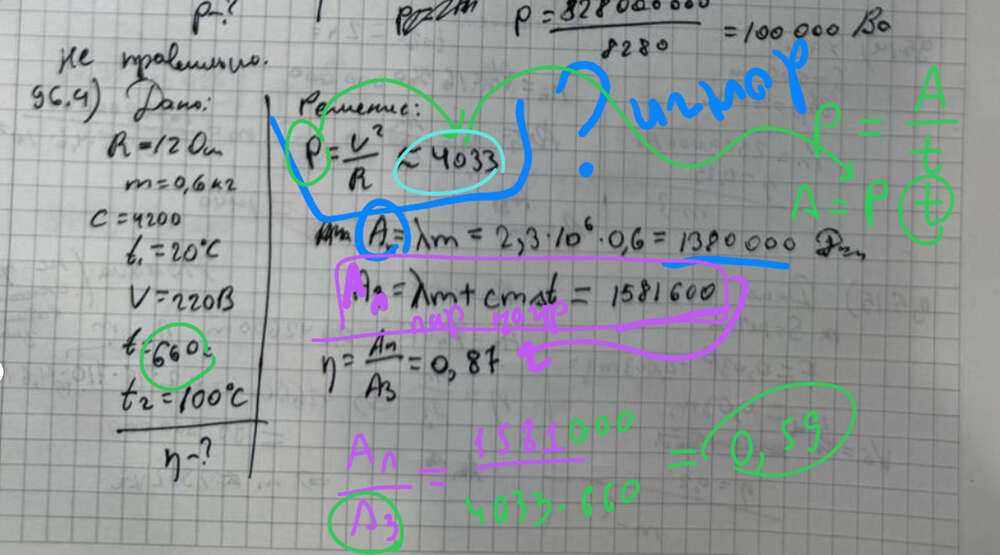 P-?
P = 828000000 / 8280 = 100 000
не правильно.
96.4) Дано:
R = 12 Ом
m = 0,6 кг
C = 4200
t₁ = 20°C
V = 220В
t = 660 c
t₂ = 100°C
η - ?
Решение:
P = V² / R ≈ 4033
? P = A / t
A = P t
Aп = λm = 2,3·10⁶·0,6 = 1380000 Дж
Aп = λm + cmΔt = 1581600
пар нагр
η = Aп / Aз = 0,87
Aп / Aз = 1581000 / 4033·660 = 0,59